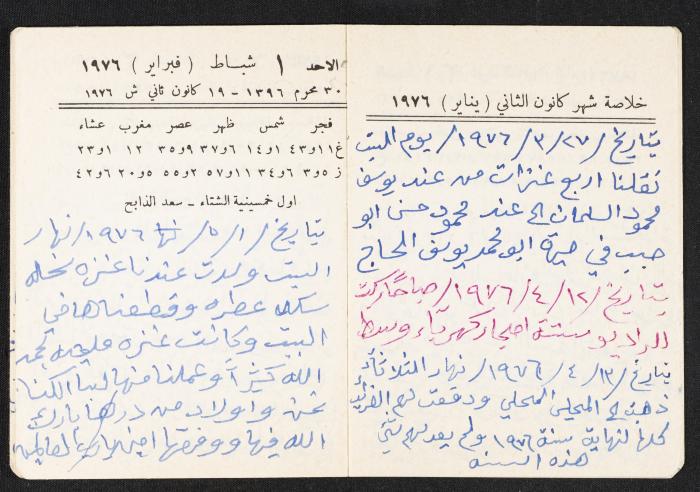 خلاصة شهر كانون الثاني ( يناير ) ١٩٧٦
بتاريخ /٢٧/ ٣/ ١٩٧٦/ يوم البيت
نقلنا اربع عنزات من عند يوسف
محمود السلمان الى عند محمود حسن ابو
حبيب في صيرة ابو محمد يوسف الحاج
بتاريخ /١٢/ ٤/ ١٩٧٦/ صباحًا ركبت
الراديو ستة احجار كهرباء وسط
بتاريخ /١٣/ ٤/ ١٩٧٦/ نهار الثلاثاء
ذهبت الى المجلس المحلي ودفعت لهم الضرائب
كلها لنهاية سنة ١٩٧٦ ولم يعد لهم شيء
هذه السنة
الاحد ١ شباط ( فبراير ) ١٩٧٦
٣٠ محرم ١٣٩٦ – ١٩ كانون ثاني ش ١٩٧٦
فجر شمس ظهر عصر مغرب عشاء
غ ١١و٤٣ ١و١٤ ٦و٣٧ ٩و٣٥ ١٢ ١و٢٣
ز ٥و٣ ٦و٣٤ ١١و٥٧ ٢و٥٥ ٥و٢٠ ٦و٤٢
اول خمسينية الشتاء – سعد الذابح
بتاريخ /١/ ٥/ ١٩٧٦/ نهار
البيت ولدت عندنا عنزه
عطره وقطعناها في
البيت وكانت عنزه مليحه
الله كثيرًا وعملنا منها لبا اكلنا
نحن و اولاد من درها بارك
الله فيها ووفقها امين يا رب العالمين